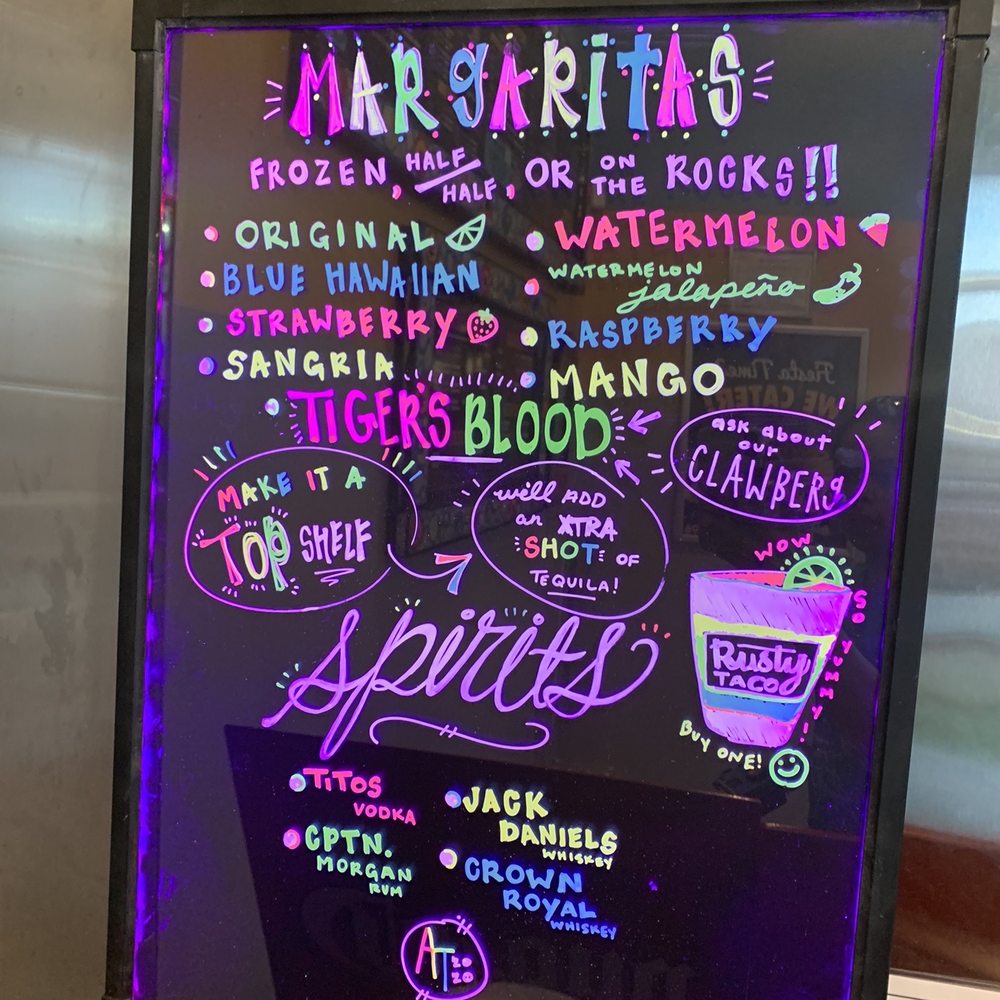 MARGARITAS
FROZEN, HALF/HALF, OR ON THE ROCKS!!
ORIGINAL
BLUE HAWAIIAN
STRAWBERRY
SANGRIA
WATERMELON
WATERMELON
jalapeño
RASPBERRY
MANGO
TIGER'S BLOOD
ask about
our
CLAWBERG
MAKE IT A
TOP SHELF
we'll ADD
an XTRA
SHOT OF
TEQUILA!
spirits
WOW
SO YUMMY!
Rusty
TACO
BUY ONE!
TITOS
VODKA
CPTN.
MORGAN
RUM
JACK
DANIELS
WHISKEY
CROWN
ROYAL
WHISKEY
AT
20
20
Fiesta Time?
WE CATER